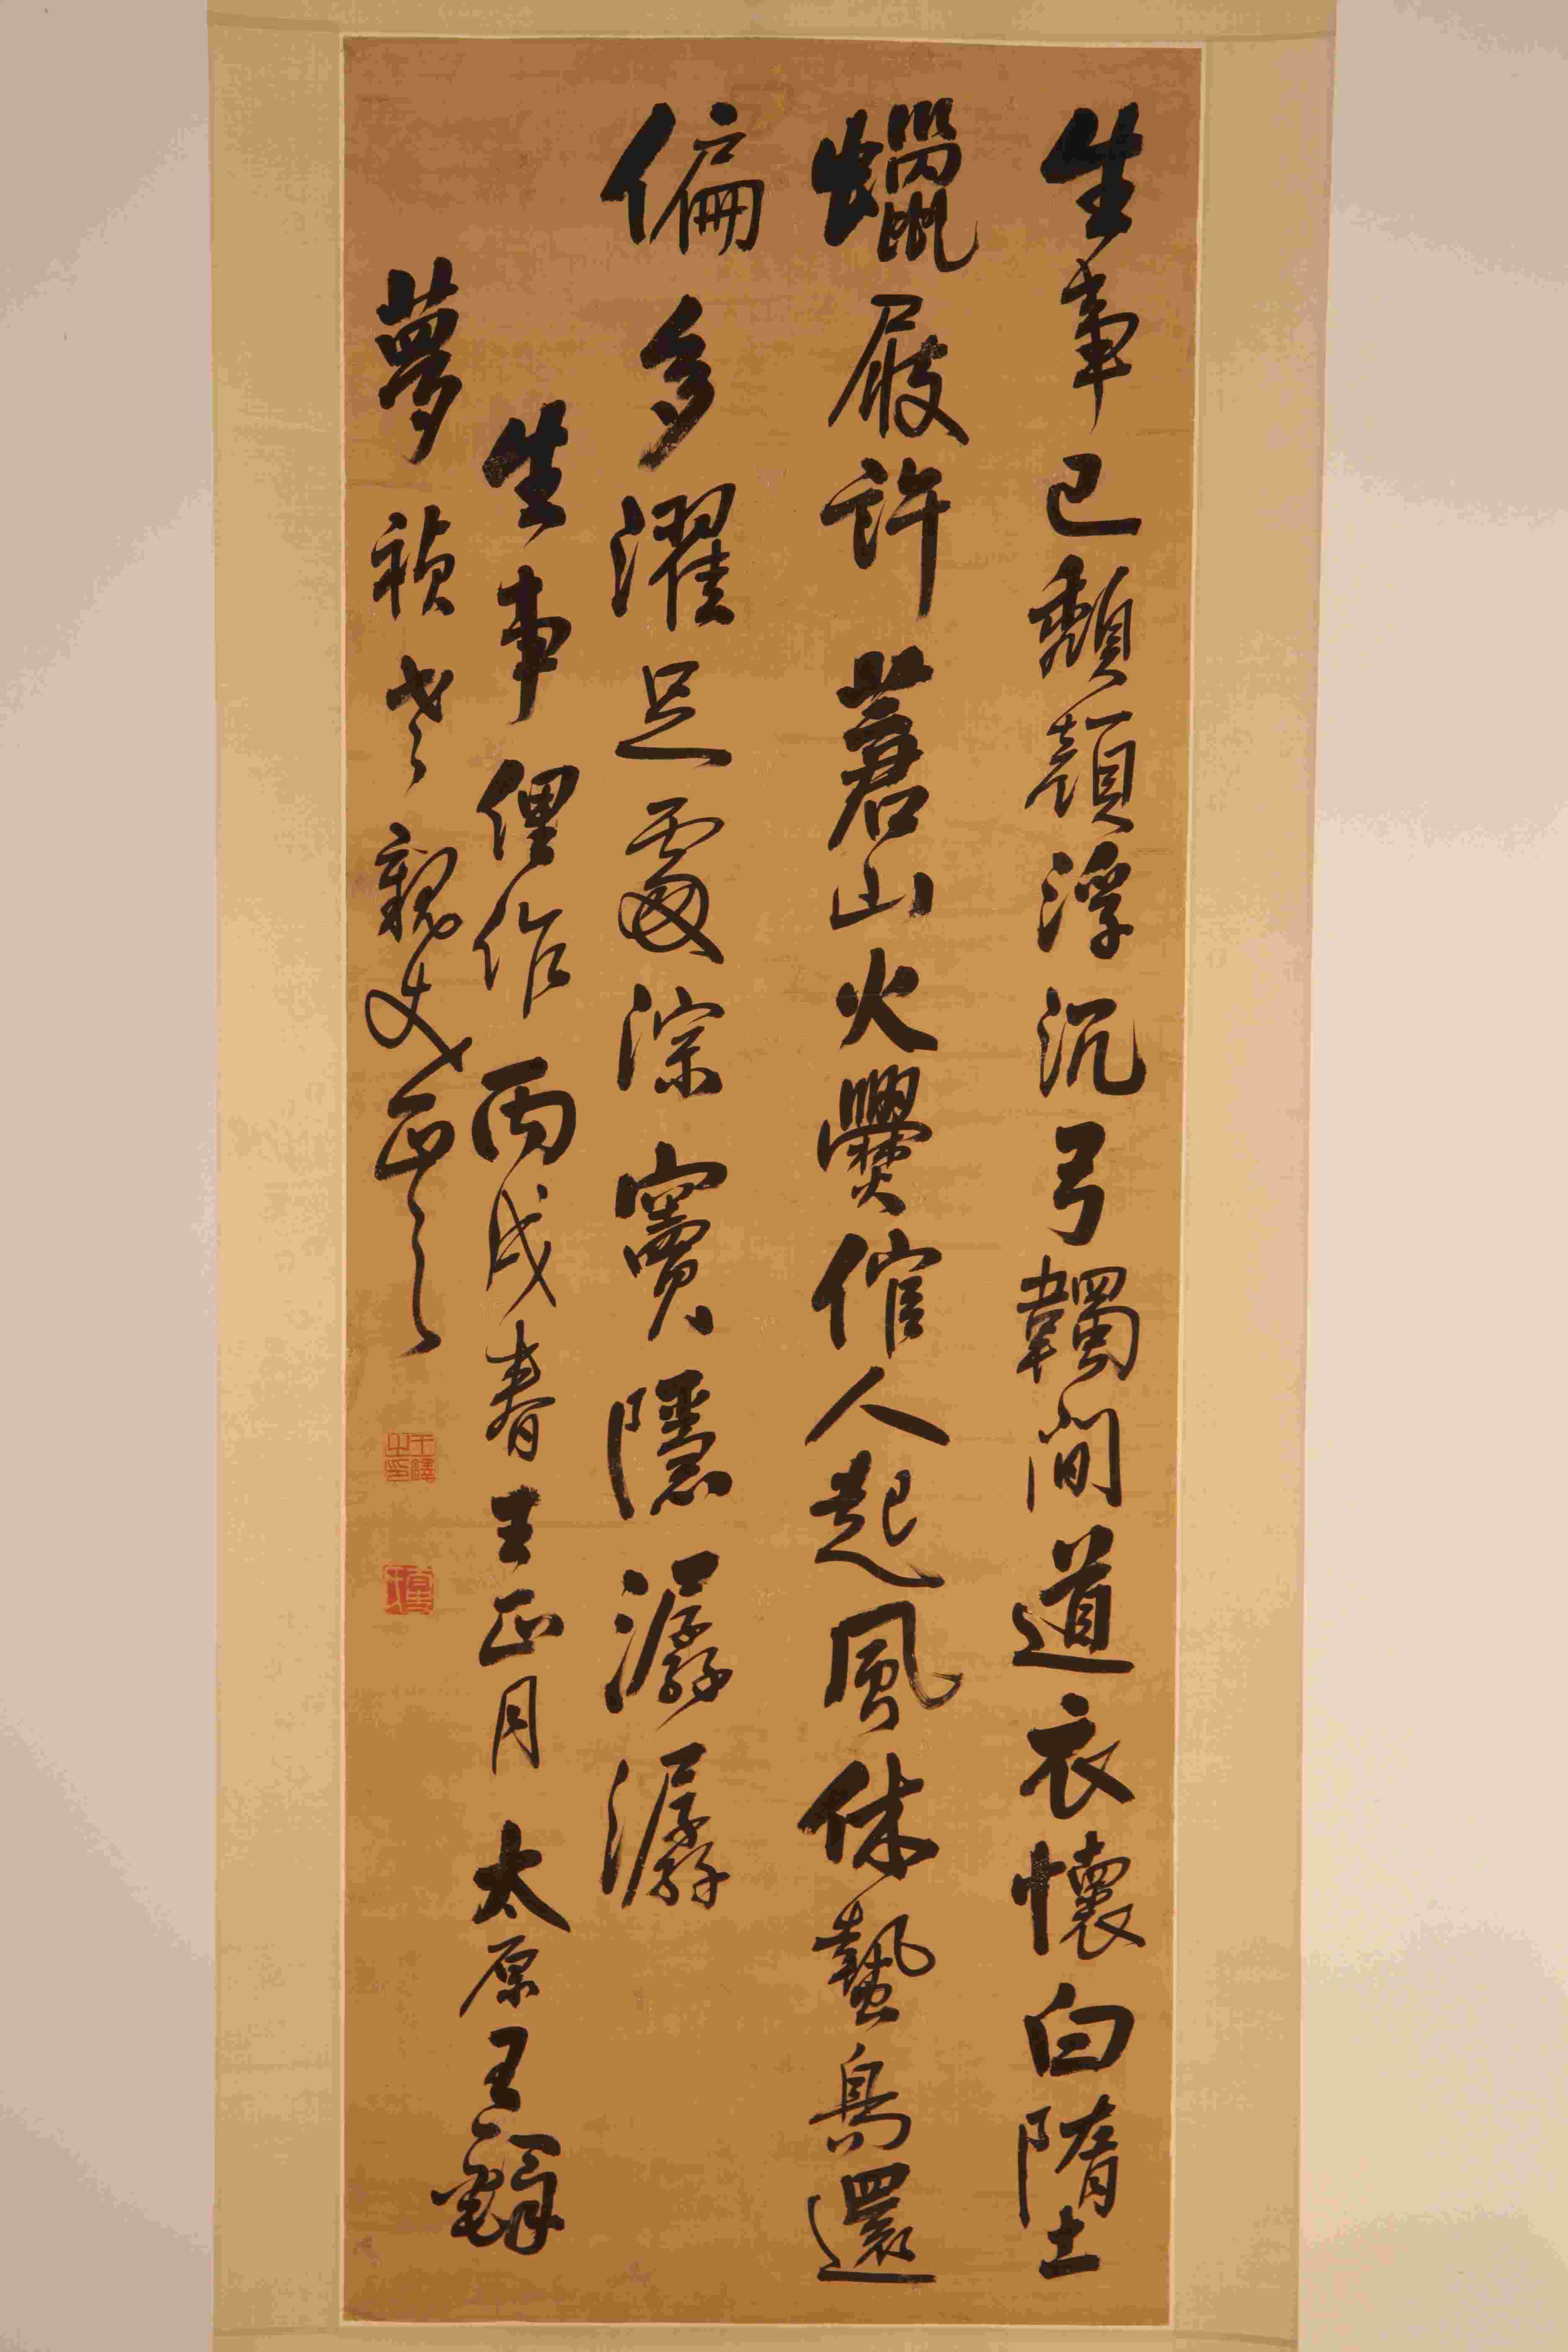 生事已頹顏浮沉弓韣間道衣懷白墮
蠟屐許蒼山火爨倌人起風休蟄鳥還
偏多濯足處淙竇隱潺潺
生事俚作丙戌春王正月太原王鐸
夢禎老親丈正之
王鐸之印